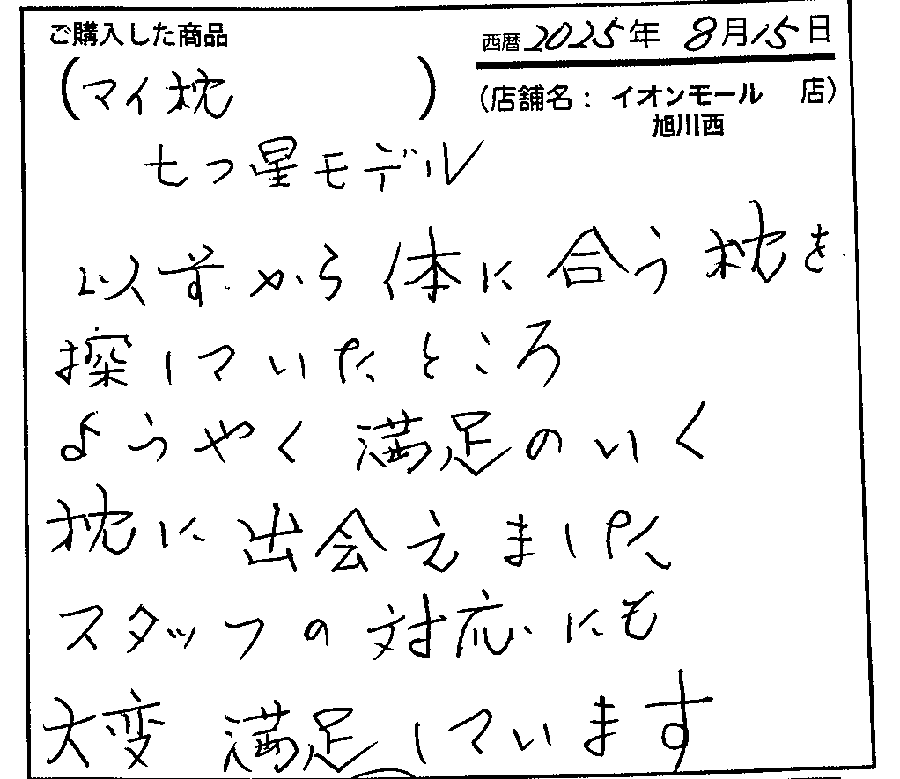 ご購入した商品
西暦2025年 8月15日
(マイ枕 )
(店舗名: イオンモール 店)
旭川西
七つ星モデル
以前から体に合う枕を
探していたところ
ようやく満足のいく
枕に出会えました
スタッフの対応にも
大変満足しています